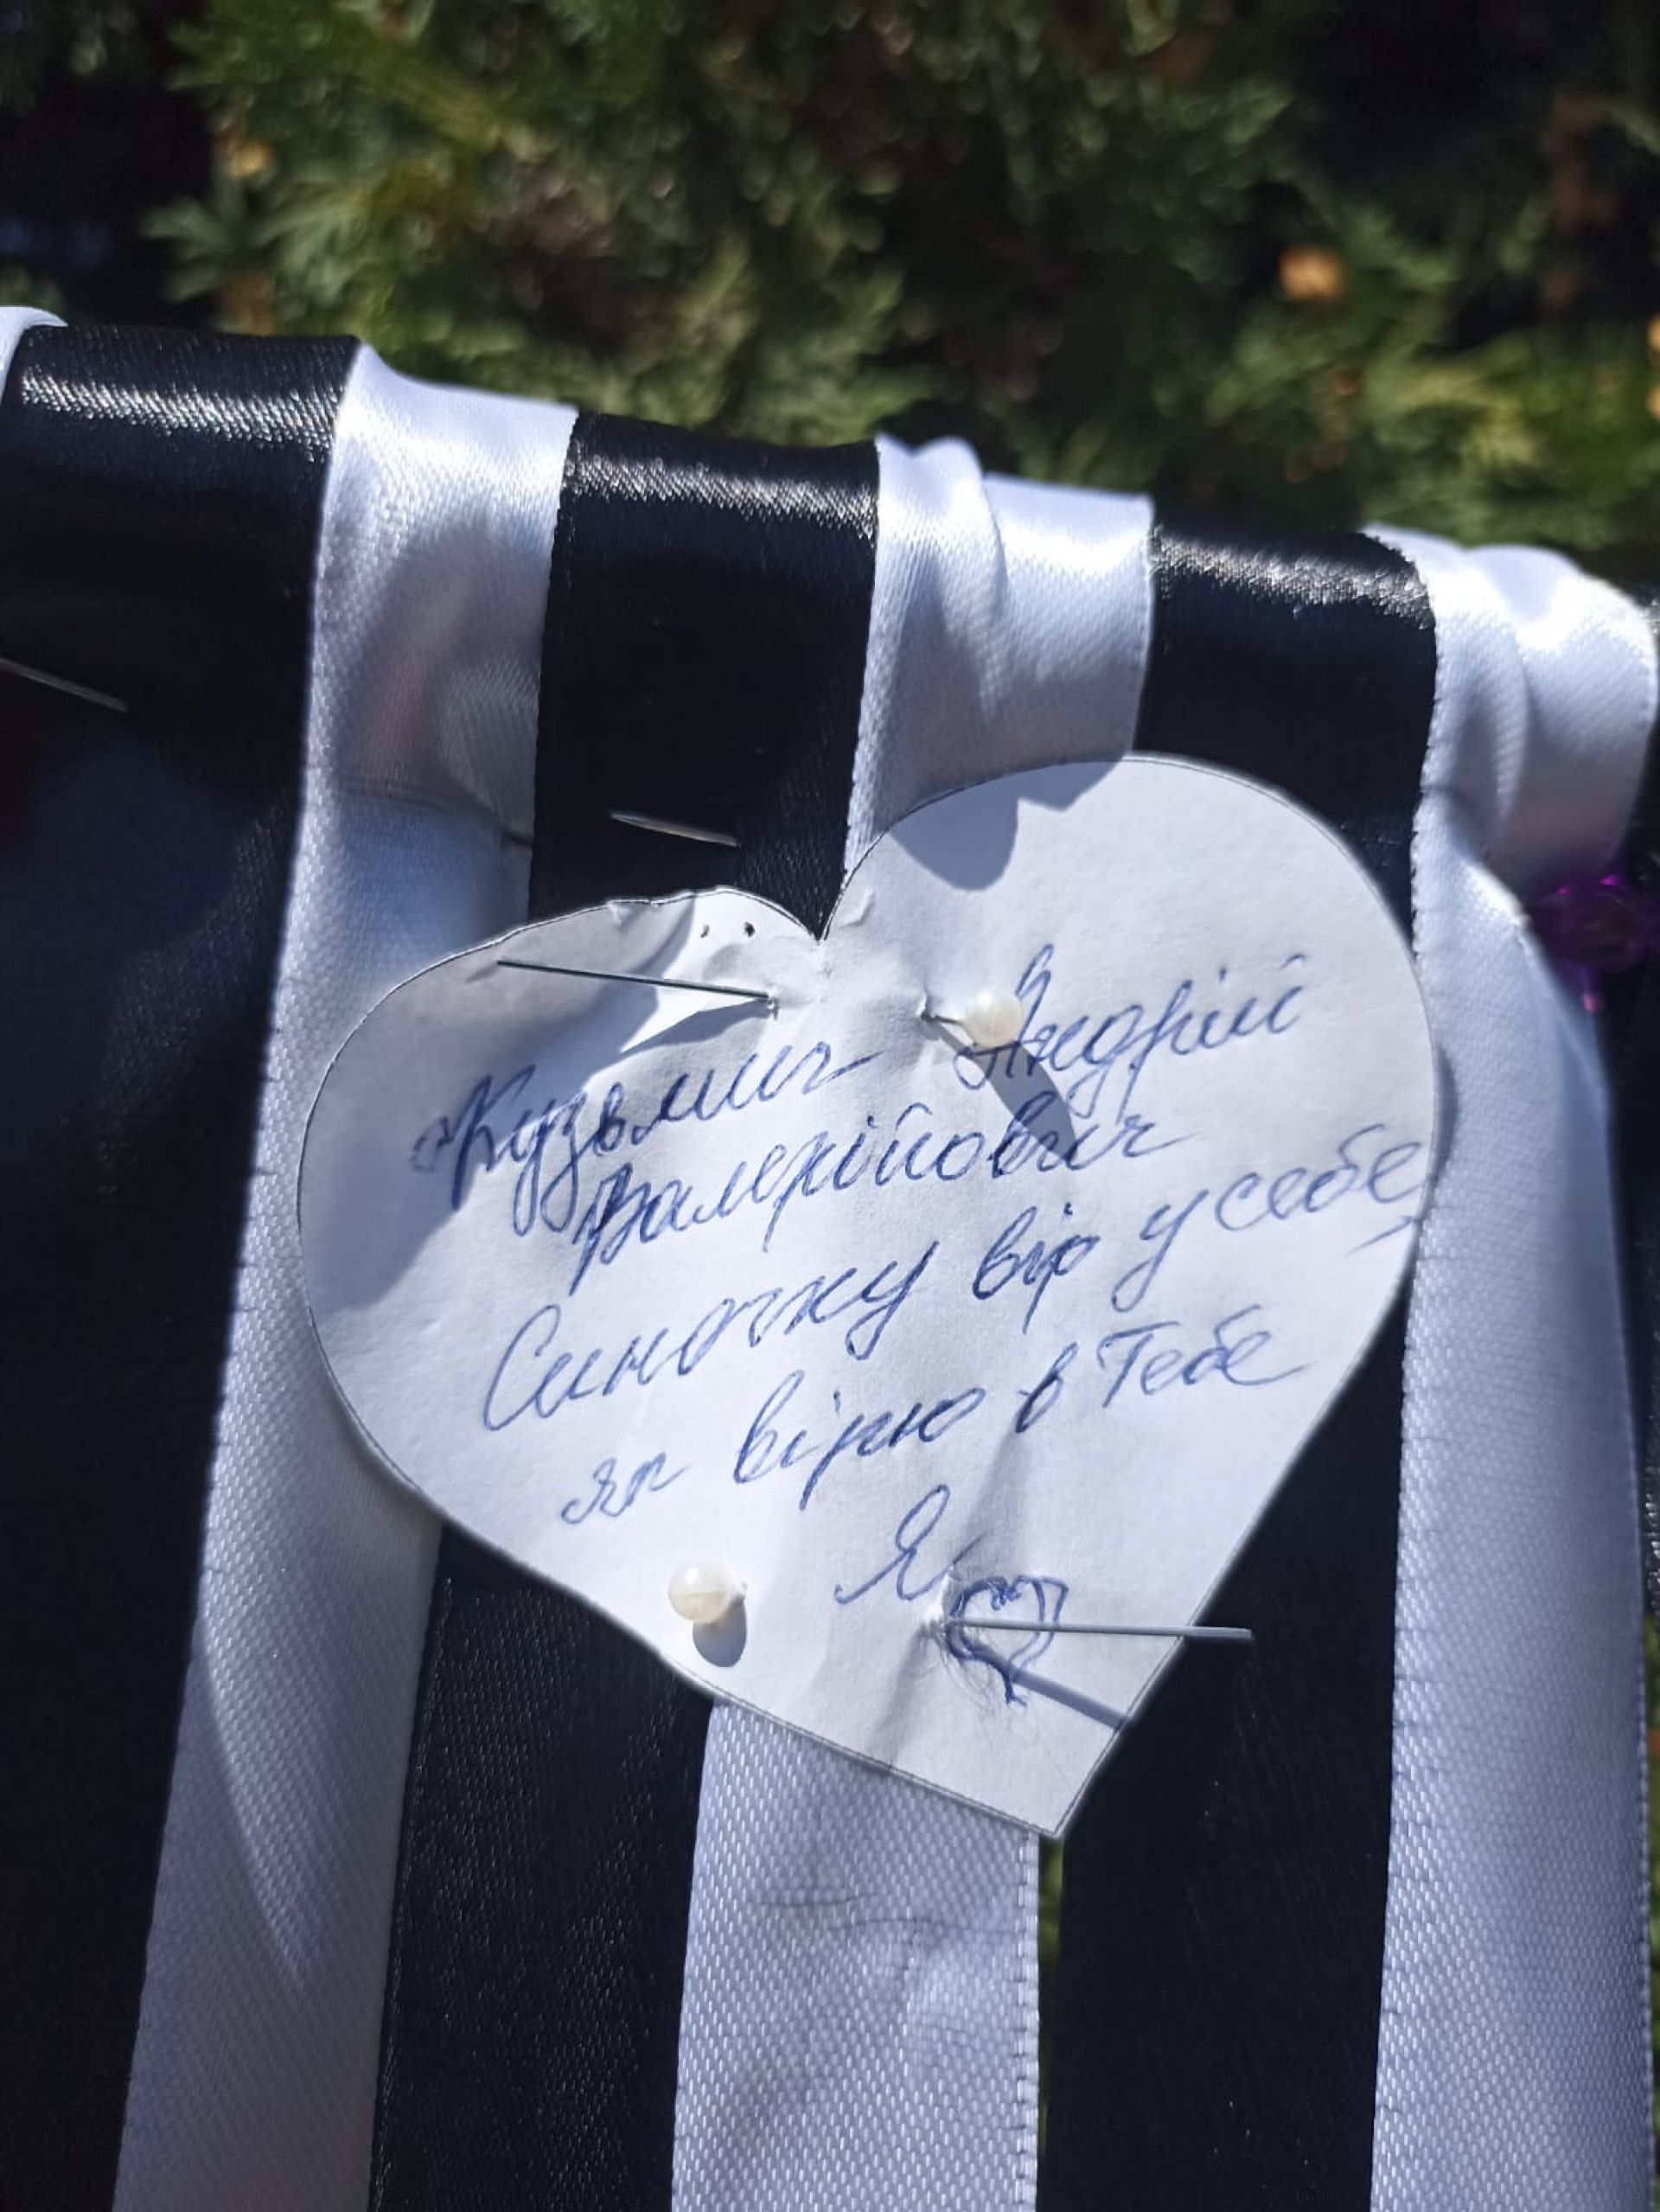 Кузьмич Андрій
Валерійович
Синочку вір у себе,
як вірю в Тебе
Я